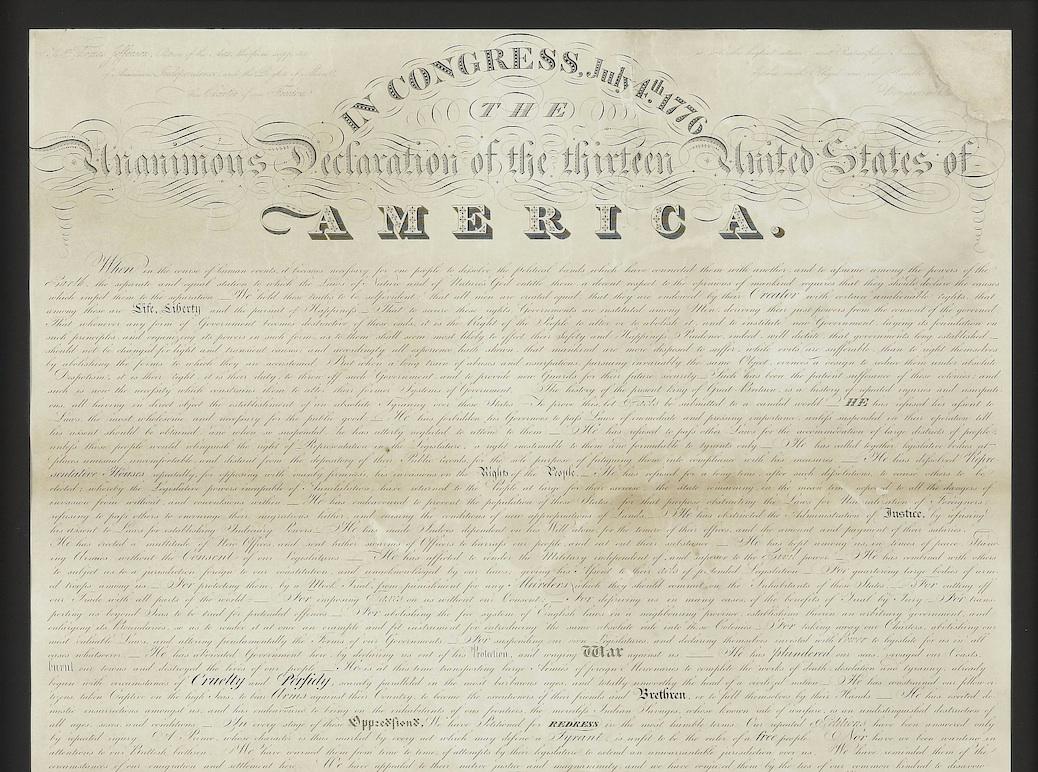 IN CONGRESS, July 4th. 1776
THE
Unanimous Declaration of the thirteen United States of
AMERICA.
When in the course of human events, it becomes neceſsary for one people to diſsolve the political bands which have connected them with another, and to aſsume among the powers of the
Earth, the separate and equal station to which the Laws of Nature and of Nature's God entitle them, a decent respect to the opinions of mankind requires that they should declare the causes
which impel them to the separation — We hold these truths to be self-evident, that all men are created equal, that they are endowed by their Creator with certain unalienable rights, that
among these are Life, Liberty and the pursuit of Happineſs — That to secure these rights Governments are instituted among Men, deriving their just powers from the consent of the governed
That whenever any form of Government becomes destructive of these ends, it is the Right of the People to alter or to abolish it, and to institute new Government, laying its foundation on
such principles, and organizing its powers in such form, as to them shall seem most likely to effect their Safety and Happineſs. Prudence, indeed, will dictate that governments long established
should not be changed for light and transient causes; and accordingly all experience hath shown, that mankind are more disposed to suffer, while evils are sufferable, than to right themselves
by abolishing the forms to which they are accustomed — But when a long train of abuses and usurpations, pursuing invariably the same Object
Despotism, it is their right, it is their duty, to throw off such Government, and to provide new Guards for their future security — Such has been the patient sufferance of these colonies; and
such is now the neceſsity which constrains them to alter their former Systems of Government — The history of the present king of Great Britain, is a history of repeated injuries and usurpati
ons, all having in direct object the establishment of an absolute Tyranny over these States — To prove this, let Facts be submitted to a candid world — HE has refused his aſsent to
Laws, the most wholesome and neceſsary for the public good — He has forbidden his Governors to paſs Laws of immediate and preſsing importance, unleſs suspended in their operation till
his aſsent should be obtained; and when so suspended, he has utterly neglected to attend to them — He has refused to paſs other Laws for the accommodation of large districts of people,
unleſs those people would relinquish the right of Representation in the Legislature, a right inestimable to them and formidable to tyrants only — He has called together legislative bodies at
places unusual, uncomfortable and distant from the depository of their Public Records, for the sole purpose of fatiguing them into compliance with his measures — He has diſsolved Repre
sentative Houses repeatedly, for opposing with manly firmneſs his invasions on the Rights of the People. — He has refused for a long time, after such diſsolutions, to cause others to be
elected; whereby the Legislative powers, incapable of Annihilation, have returned to the People at large for their exercise; the State remaining in the mean time exposed to all the dangers of
invasion from without, and convulsions within — He has endeavoured to prevent the population of these States; for that purpose obstructing the Laws for Naturalization of Foreigners;
refusing to paſs others to encourage their migrations hither, and raising the conditions of new appropriations of Lands — He has obstructed the Administration of Justice, by refusing
his aſsent to Laws for establishing Judiciary Powers — He has made Judges dependent on his Will alone, for the tenure of their offices, and the amount and payment of their salaries —
He has erected a multitude of New Offices, and sent hither swarms of Officers to harraſs our people
ing Armies without the Consent of our Legislatures — He has affected to render the Military independent of, and superior to the Civil power — He has combined with others
to subject us to a jurisdiction foreign to our constitution
at troops among us — For protecting them, by a Mock Trial, from punishment for any Murders which they should commit on the Inhabitants of these States — For cutting off
our Trade with all parts of the world — For imposing Taxes on us without our Consent — For depriving us in many cases, of the benefits of Trial by Jury — For trans
porting us beyond Seas to be tried for pretended offences — For abolishing the free system of English laws in a neighbouring Province, establishing therein an arbitrary Government, and
enlarging its Boundaries, so as to render it at once an example and fit instrument for introducing the same absolute rule into these Colonies — For taking away our Charters, abolishing our
most valuable Laws, and altering fundamentally the Forms of our Governments — For suspending our own Legislatures, and declaring themselves invested with Power to legislate for us in all
cases whatsoever — He has abdicated Government here, by declaring us out of his Protection, and waging War against us — He has plundered our seas, ravaged our Coasts,
burnt our towns, and destroyed the lives of our people — He is at this time transporting large Armies of foreign Mercenaries to compleat the works of death, desolation and tyranny, already
begun with circumstances of Cruelty and Perfidy scarcely paralleled in the most barbarous ages, and totally unworthy the head of a civilized nation — He has constrained our fellow
citizens taken Captive on the high Seas to bear Arms against their Country, to become the executioners of their friends and Brethren, or to fall themselves by their Hands — He has excited do
mestic insurrections amongst us
all ages, sexes and conditions — In every stage of these Oppreſsions, We have Petitioned for REDRESS in the most humble terms: Our repeated Petitions have been answered only
by repeated injury — A Prince, whose character is thus marked by every act which may define a Tyrant, is unfit to be the ruler of a free people — Nor have we been wanting in
attentions to our British brethren — We have warned them from time to time of attempts by their legislature to extend an unwarrantable jurisdiction over us — We have reminded them of the
circumstances of our emigration and settlement here — We have appealed to their native justice and magnanimity, and we have conjured them by the ties of our common kindred to disavow